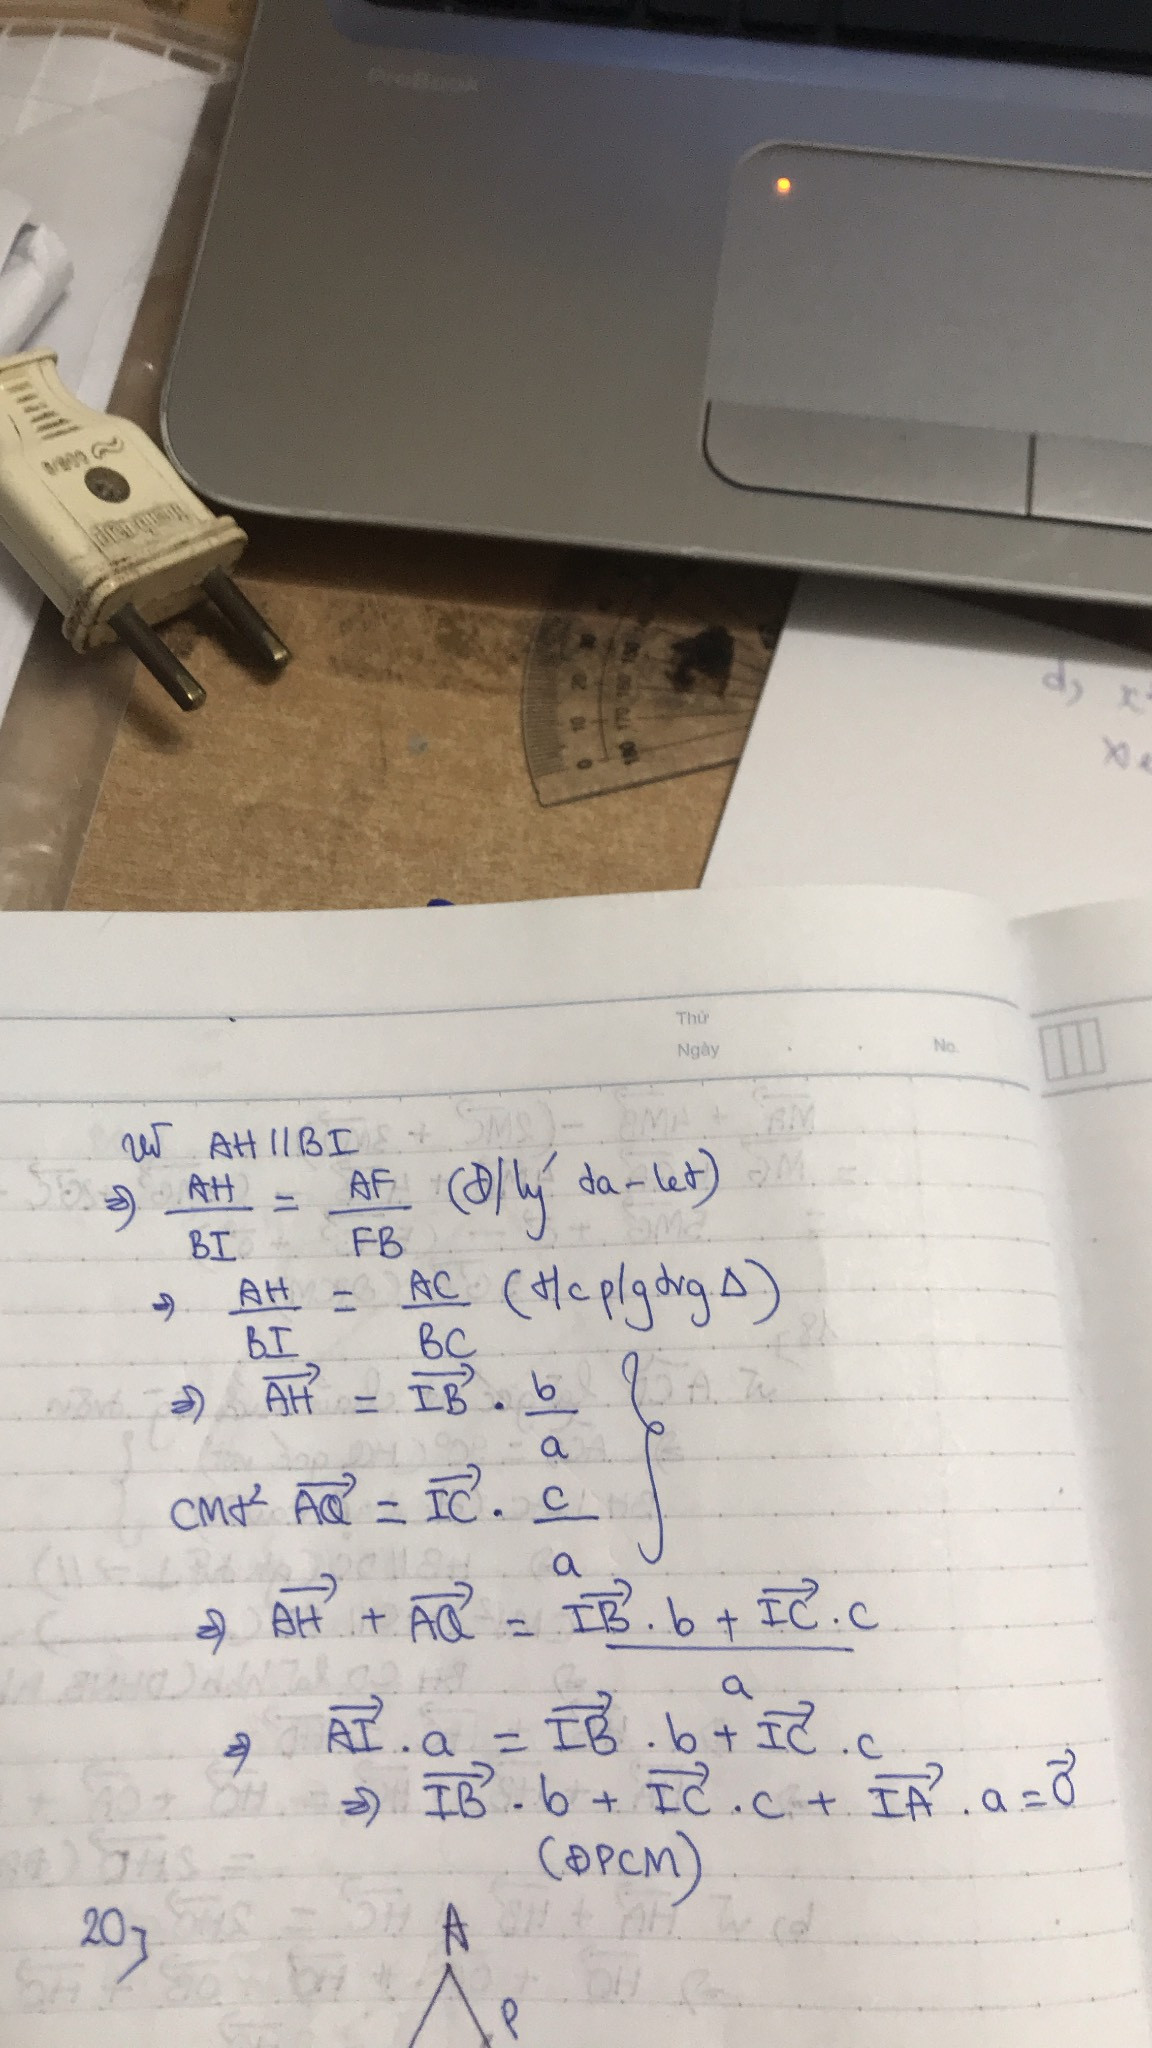 ProBook
0 10 20 30
180 170 160 150
d) x²
Thứ
Ngày
No.
vì AH // BI
⇒ AH/BI = AF/FB (Đ/lý ta-let)
⇒ AH/BI = AC/BC (t/c p/g trg Δ)
⇒ \overrightarrow{AH} = \overrightarrow{IB} . b/a
CMt² \overrightarrow{AQ} = \overrightarrow{IC} . c/a
⇒ \overrightarrow{AH} + \overrightarrow{AQ} = (\overrightarrow{IB} . b + \overrightarrow{IC} . c)/a
⇒ \overrightarrow{AI} . a = \overrightarrow{IB} . b + \overrightarrow{IC} . c
⇒ \overrightarrow{IB} . b + \overrightarrow{IC} . c + \overrightarrow{IA} . a = \overrightarrow{0}
(ĐPCM)
20) A
P